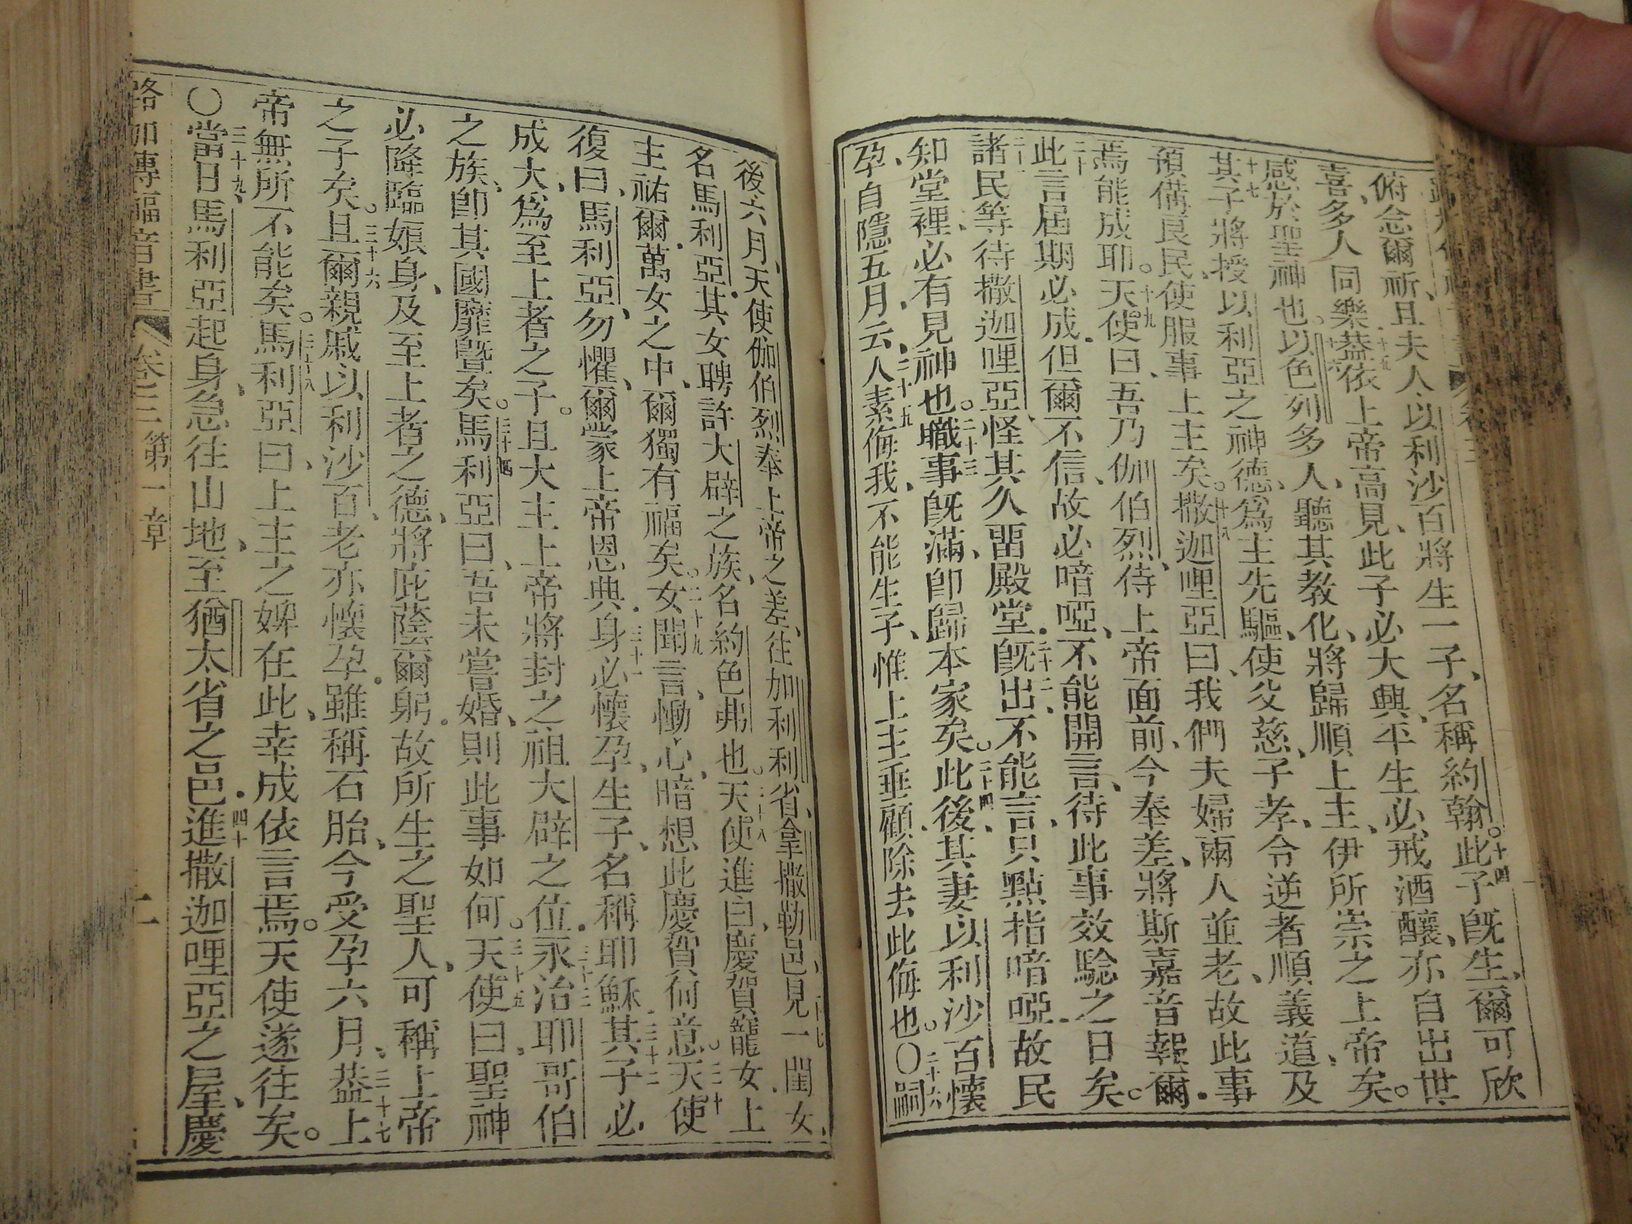 俯念爾祈、且夫人以利沙百將生一子、名稱約翰。十四此子旣生、爾可欣
喜、多人同樂、十五蓋依上帝高見、此子必大興、平生必戒酒釀、亦自出世
感於聖神也、十六以色列多人、聽其敎化、將歸順上主、伊所崇之上帝矣。
十七其子將授以利亞之神德、爲主先驅、使父慈、子孝、令逆者順義道、及
預備良民、使服事上主矣。十八撒迦哩亞曰、我們夫婦兩人並老、故此事
焉能成耶。十九天使曰、吾乃伽伯烈、侍上帝面前、今奉差、將斯嘉音報爾。
二十此言屆期必成、但爾不信、故必喑啞、不能開言、待此事效騐之日矣。
二一諸民等待撒迦哩亞、怪其久畱殿堂。二十二旣出、不能言、只點指喑啞、故民
知堂裡、必有見神也。二十三職事旣滿、卽歸本家矣。二十四此後、其妻以利沙百懷
孕、自隱五月、云、二十五人素侮我、不能生子、惟上主垂顧、除去此侮也。〇二十六嗣
後六月、天使伽伯烈奉上帝之差、往加利利省、拿撒勒邑、二十七見一閨女、
名馬利亞、其女聘許大辟之族、名約色弗也。二十八天使進曰、慶賀寵女、上
主祐爾、萬女之中、爾獨有福矣。二十九女聞言、慟心、暗想此慶賀何意。三十天使
復曰、馬利亞、勿懼、爾蒙上帝恩典、三十一身必懷孕、生子、名稱耶穌、三十二其子必
成大、爲至上者之子。且大主上帝將封之祖大辟之位、三十三永治耶哥伯
之族、卽其國靡曁矣。三十四馬利亞曰、吾未嘗婚、則此事如何。三十五天使曰、聖神
必降臨娘身、及至上者之德、將庇蔭爾躬、故所生之聖人、可稱上帝
之子矣。三十六且爾親戚以利沙百、老亦懷孕、雖稱石胎、今受孕六月、三十七蓋上
帝無所不能矣。三十八馬利亞曰、上主之婢在此、幸成依言焉。天使遂往矣。
〇三十九當日、馬利亞起身、急往山地、至猶太省之邑、四十進撒迦哩亞之屋、慶
路加傳福音書 卷三 第一章 二